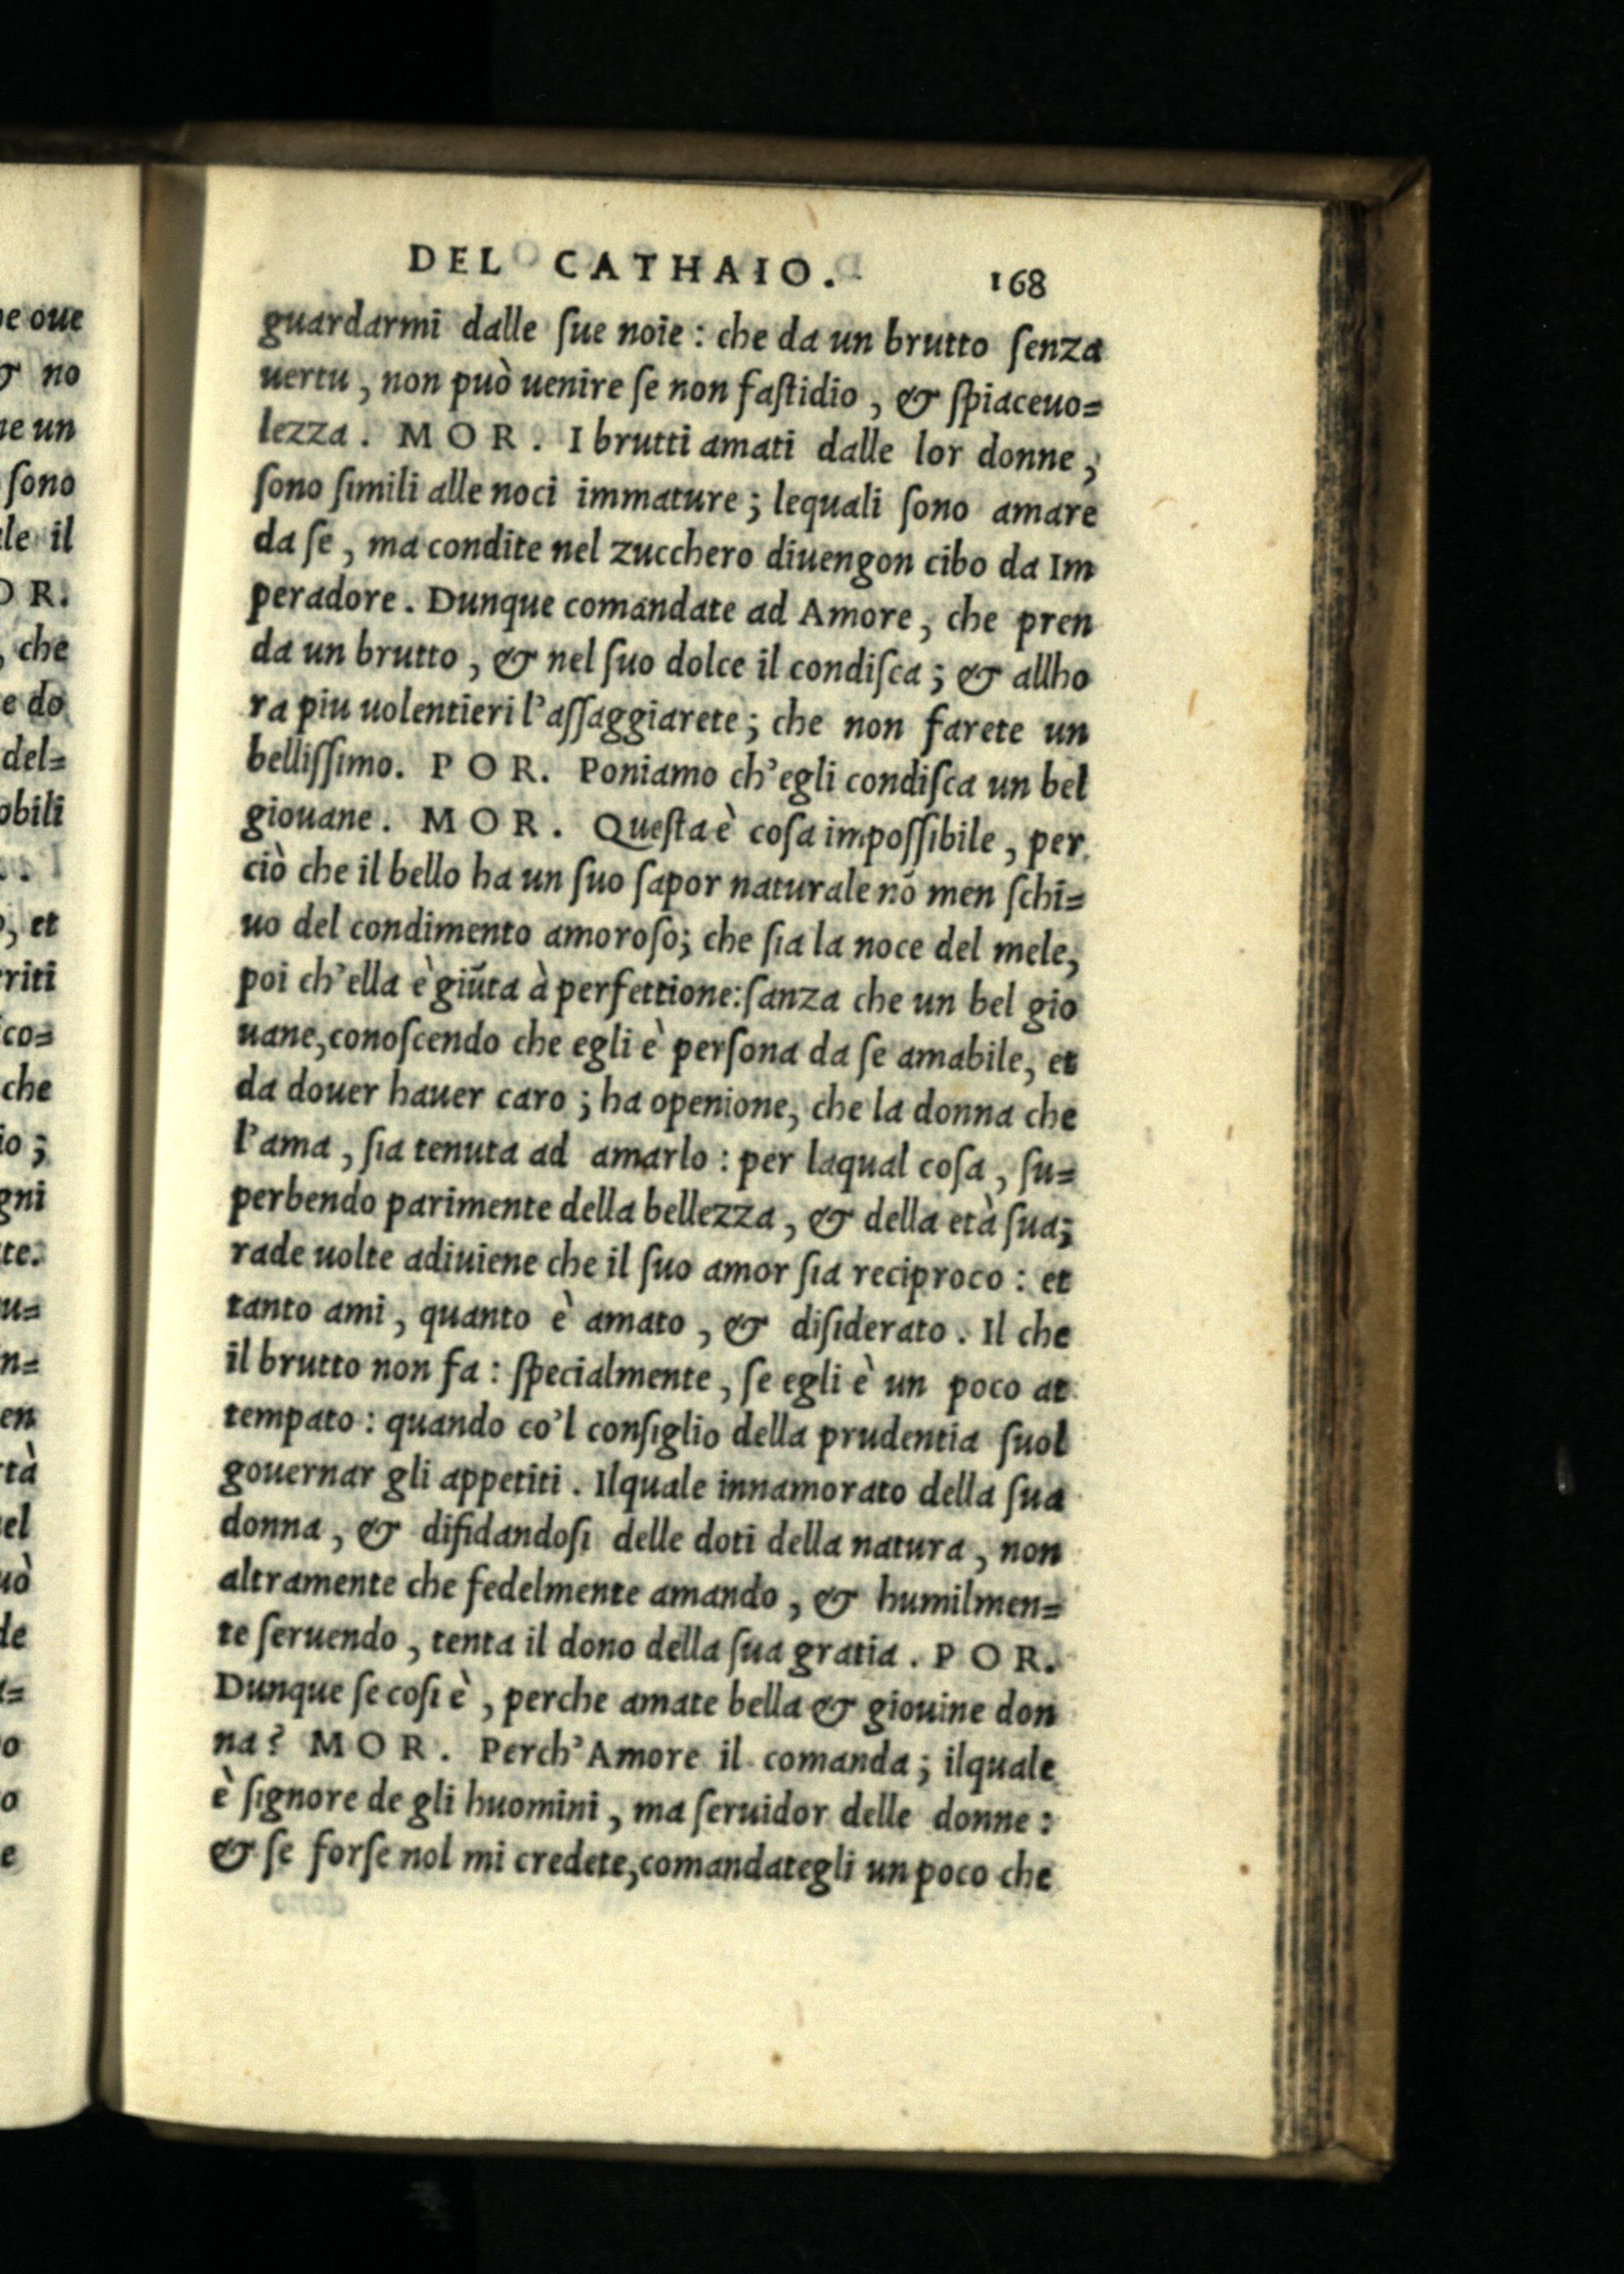 DEL CATHAIO. 168
guardarmi dalle ſue noie : che da un brutto ſenza
uertu , non può uenire ſe non faſtidio , & ſpiaceuo=
lezza . MOR . I brutti amati dalle lor donne ,
ſono ſimili alle noci immature ; lequali ſono amare
da ſe , ma condite nel zucchero diuengon cibo da Im
peradore . Dunque comandate ad Amore , che pren
da un brutto , & nel ſuo dolce il condiſca ; & allho
ra piu uolentieri l'aſſaggiarete ; che non farete un
belliſſimo. POR. Poniamo ch'egli condiſca un bel
giouane . MOR . Queſta è coſa impoſſibile , per
ciò che il bello ha un ſuo ſapor naturale nõ men ſchi=
uo del condimento amoroſo; che ſia la noce del mele,
poi ch'ella è giũta à perfettione:ſanza che un bel gio
uane,conoſcendo che egli è perſona da ſe amabile, et
da douer hauer caro ; ha openione, che la donna che
l'ama , ſia tenuta ad amarlo : per laqual coſa , ſu=
perbendo parimente della bellezza , & della età ſua;
rade uolte adiuiene che il ſuo amor ſia reciproco : et
tanto ami , quanto è amato , & diſiderato . Il che
il brutto non fa : ſpecialmente , ſe egli è un poco at
tempato : quando co'l conſiglio della prudentia ſuol
gouernar gli appetiti . Ilquale innamorato della ſua
donna , & difidandoſi delle doti della natura , non
altramente che fedelmente amando , & humilmen=
te ſeruendo , tenta il dono della ſua gratia . POR.
Dunque ſe coſi è , perche amate bella & giouine don
na? MOR . Perch'Amore il comanda ; ilquale
è ſignore de gli huomini , ma ſeruidor delle donne :
& ſe forſe nol mi credete,comandategli un poco che